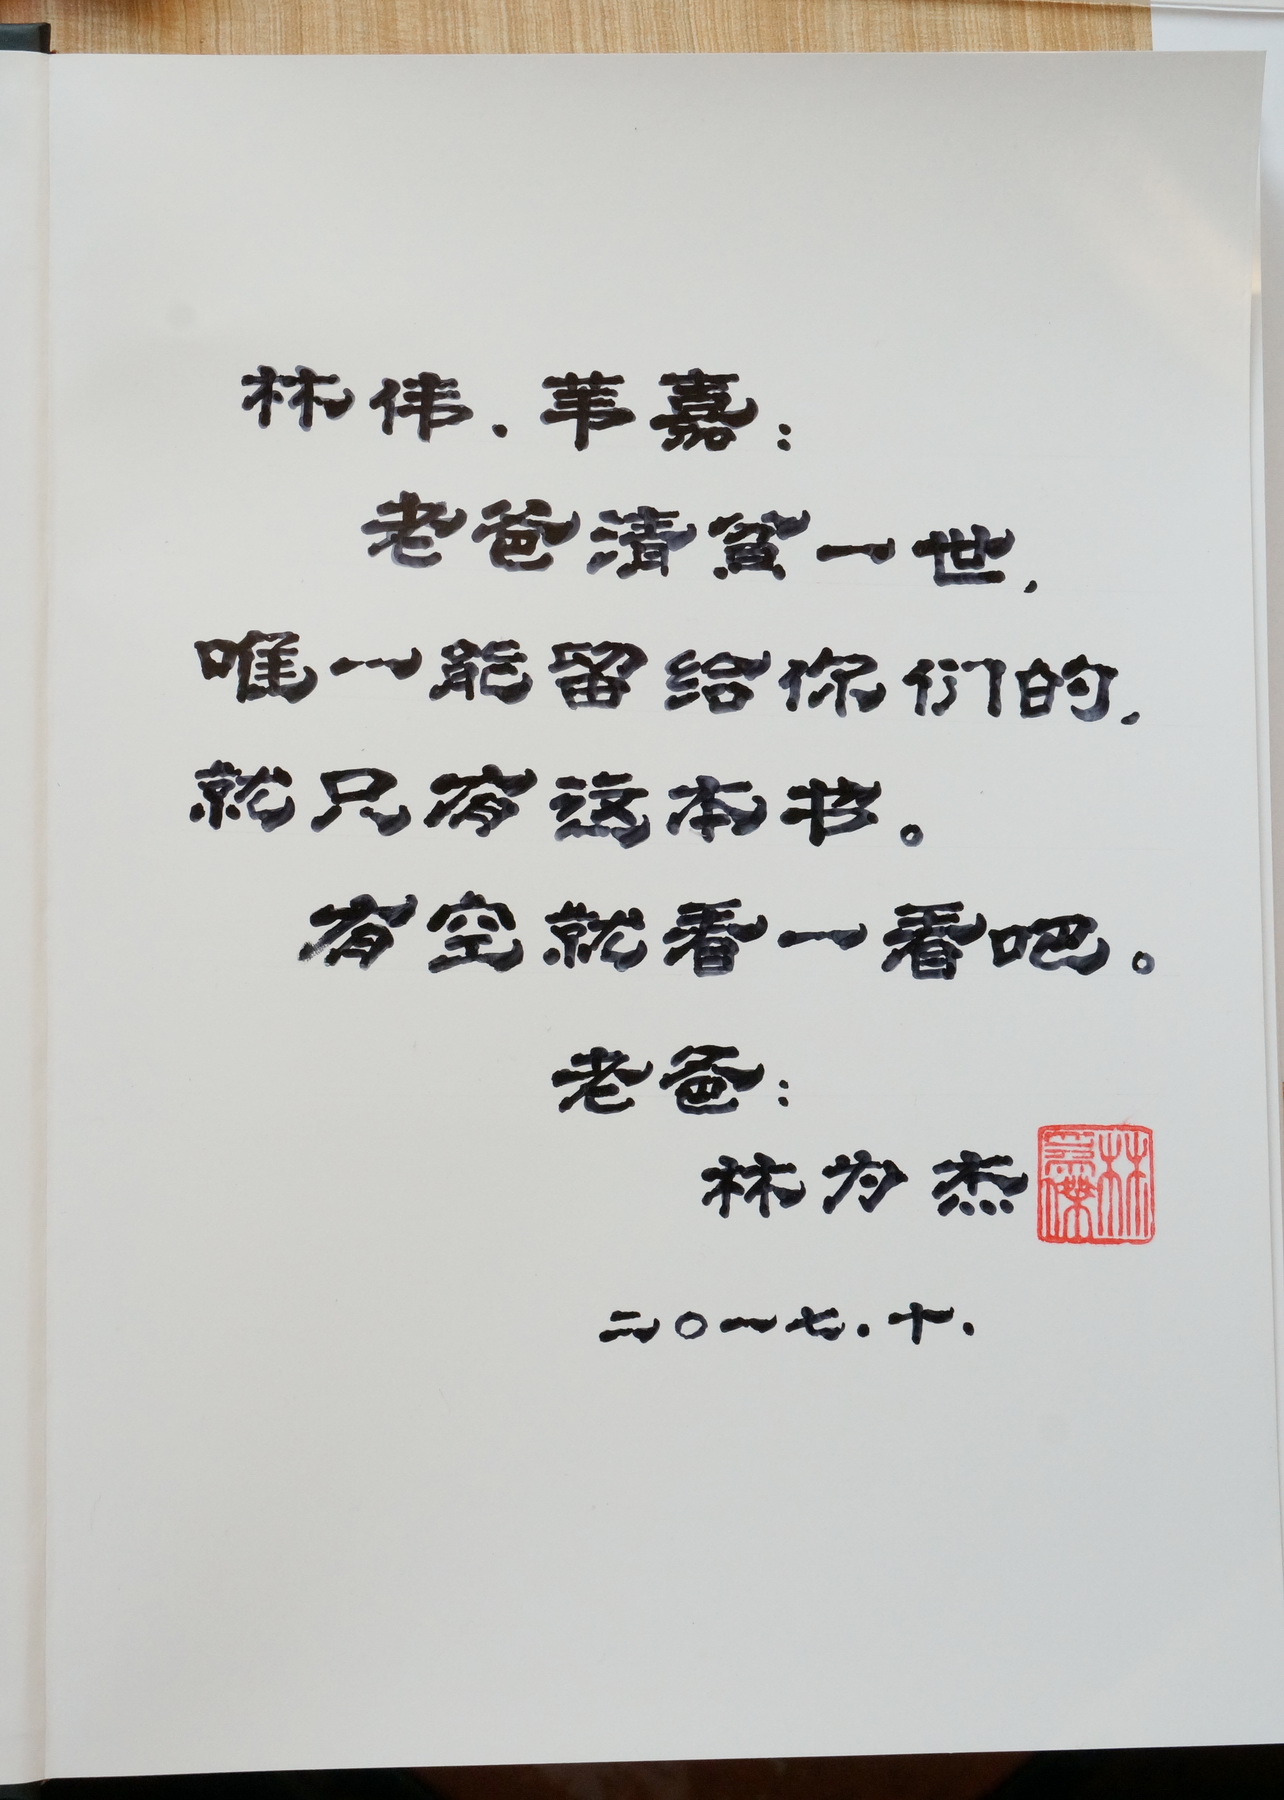 林伟.苇嘉:
老爸清贫一世,
唯一能留给你们的,
就只有这本书。
有空就看一看吧。
老爸:
林为杰
二〇一七.十.